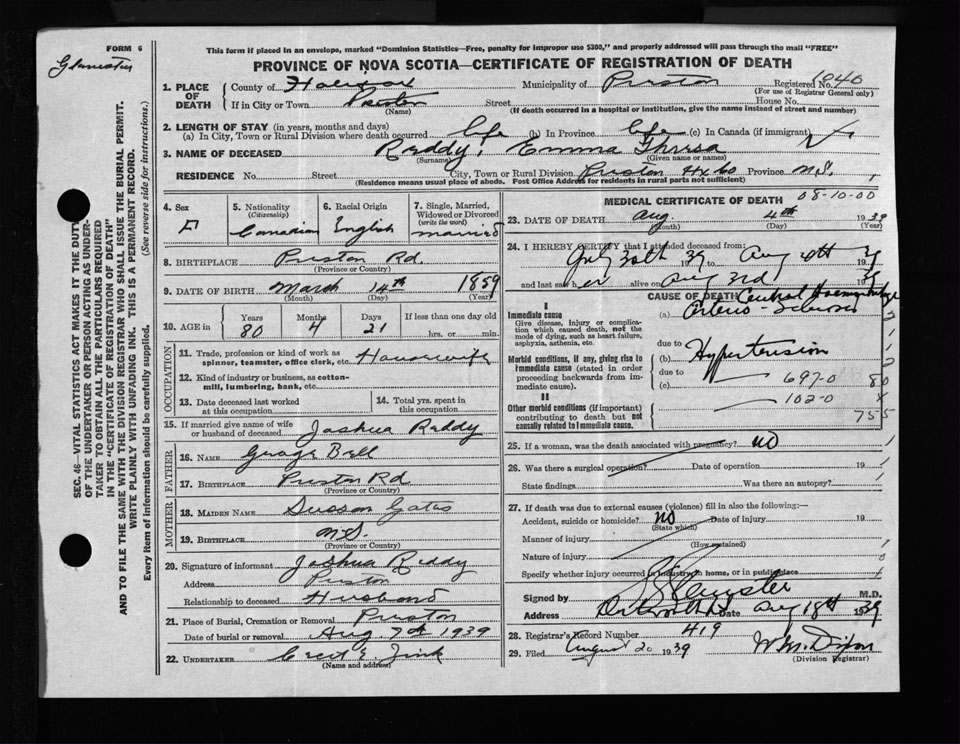 FORM 6
This form if placed in an envelope, marked "Dominion Statistics—Free, penalty for improper use $300," and properly addressed will pass through the mail "FREE"
PROVINCE OF NOVA SCOTIA—CERTIFICATE OF REGISTRATION OF DEATH
1. PLACE OF DEATH
County of Halifax Municipality of Preston Registered 1840
(For use of Registrar General only)
If in City or Town Preston Street House No.
(Name) (If death occurred in a hospital or institution, give the name instead of street and number)
2. LENGTH OF STAY (in years, months and days)
(a) In City, Town or Rural Division where death occurred life (b) In Province life (c) In Canada (if immigrant)
3. NAME OF DECEASED Reddy, Emma
(Surname) (Given name or names)
RESIDENCE No. Street City, Town or Rural Division Preston Hx Co Province N.S.
(Residence means usual place of abode. Post Office Address for residents in rural parts not sufficient)
4. Sex F
5. Nationality (Citizenship) Canadian
6. Racial Origin English
7. Single, Married, Widowed or Divorced (write the word) married
8. BIRTHPLACE Preston Rd.
(Province or Country)
9. DATE OF BIRTH March 14th 1859
(Month) (Day) (Year)
10. AGE in Years Months Days If less than one day
80 4 21 hrs. or min.
OCCUPATION
11. Trade, profession or kind of work as spinner, teamster, office clerk, etc. Housewife
12. Kind of industry or business, as cotton-mill, lumbering, bank, etc.
13. Date deceased last worked at this occupation
14. Total yrs. spent in this occupation
15. If married give name of wife or husband of deceased Joshua Reddy
FATHER
16. NAME George Bell
17. BIRTHPLACE Preston Rd
(Province or Country)
MOTHER
18. MAIDEN NAME Susson Gates
19. BIRTHPLACE N.S.
(Province or Country)
20. Signature of informant Joshua Reddy
Address Preston
Relationship to deceased Husband
21. Place of Burial, Cremation or Removal Preston
Date of burial or removal Aug. 7th 1939
22. UNDERTAKER Creed E. Zink
(Name and address)
MEDICAL CERTIFICATE OF DEATH 08-10-00
23. DATE OF DEATH Aug. 4th 1939
(Month) (Day) (Year)
24. I HEREBY CERTIFY that I attended deceased from:
July 30th 39 to Aug 4th 1939
and last saw her alive on Aug 3rd 1939
CAUSE OF DEATH
I
Immediate cause
Give disease, injury or complication which caused death, not the mode of dying, such as heart failure, asphyxia, asthenia, etc.
(a) Cerebral Haemorrhage
Arterio-Sclerosis
Morbid conditions, if any, giving rise to immediate cause (stated in order proceeding backwards from immediate cause).
due to
(b) Hypertension
due to
(c) 697-0
102-0
II
Other morbid conditions (if important) contributing to death but not causally related to Immediate cause.
25. If a woman, was the death associated with pregnancy? NO
26. Was there a surgical operation? Date of operation 19
State findings Was there an autopsy?
27. If death was due to external causes (violence) fill in also the following:—
Accident, suicide or homicide? NO Date of injury 19
(State which)
Manner of injury
(How sustained)
Nature of injury
Specify whether injury occurred in industry, in home, or in public place
Signed by M.D.
Address Dartmouth Date Aug 18th 1939
28. Registrar's Record Number 419
29. Filed August 20 1939 W. M. Dixon
(Division Registrar)
SEC. 46—VITAL STATISTICS ACT MAKES IT THE DUTY OF THE UNDERTAKER OR PERSON ACTING AS UNDERTAKER TO OBTAIN ALL THE PARTICULARS REQUIRED IN THE "CERTIFICATE OF REGISTRATION OF DEATH" AND TO FILE THE SAME WITH THE DIVISION REGISTRAR WHO SHALL ISSUE THE BURIAL PERMIT.
WRITE PLAINLY WITH UNFADING INK. THIS IS A PERMANENT RECORD.
Every item of information should be carefully supplied. (See reverse side for instructions.)